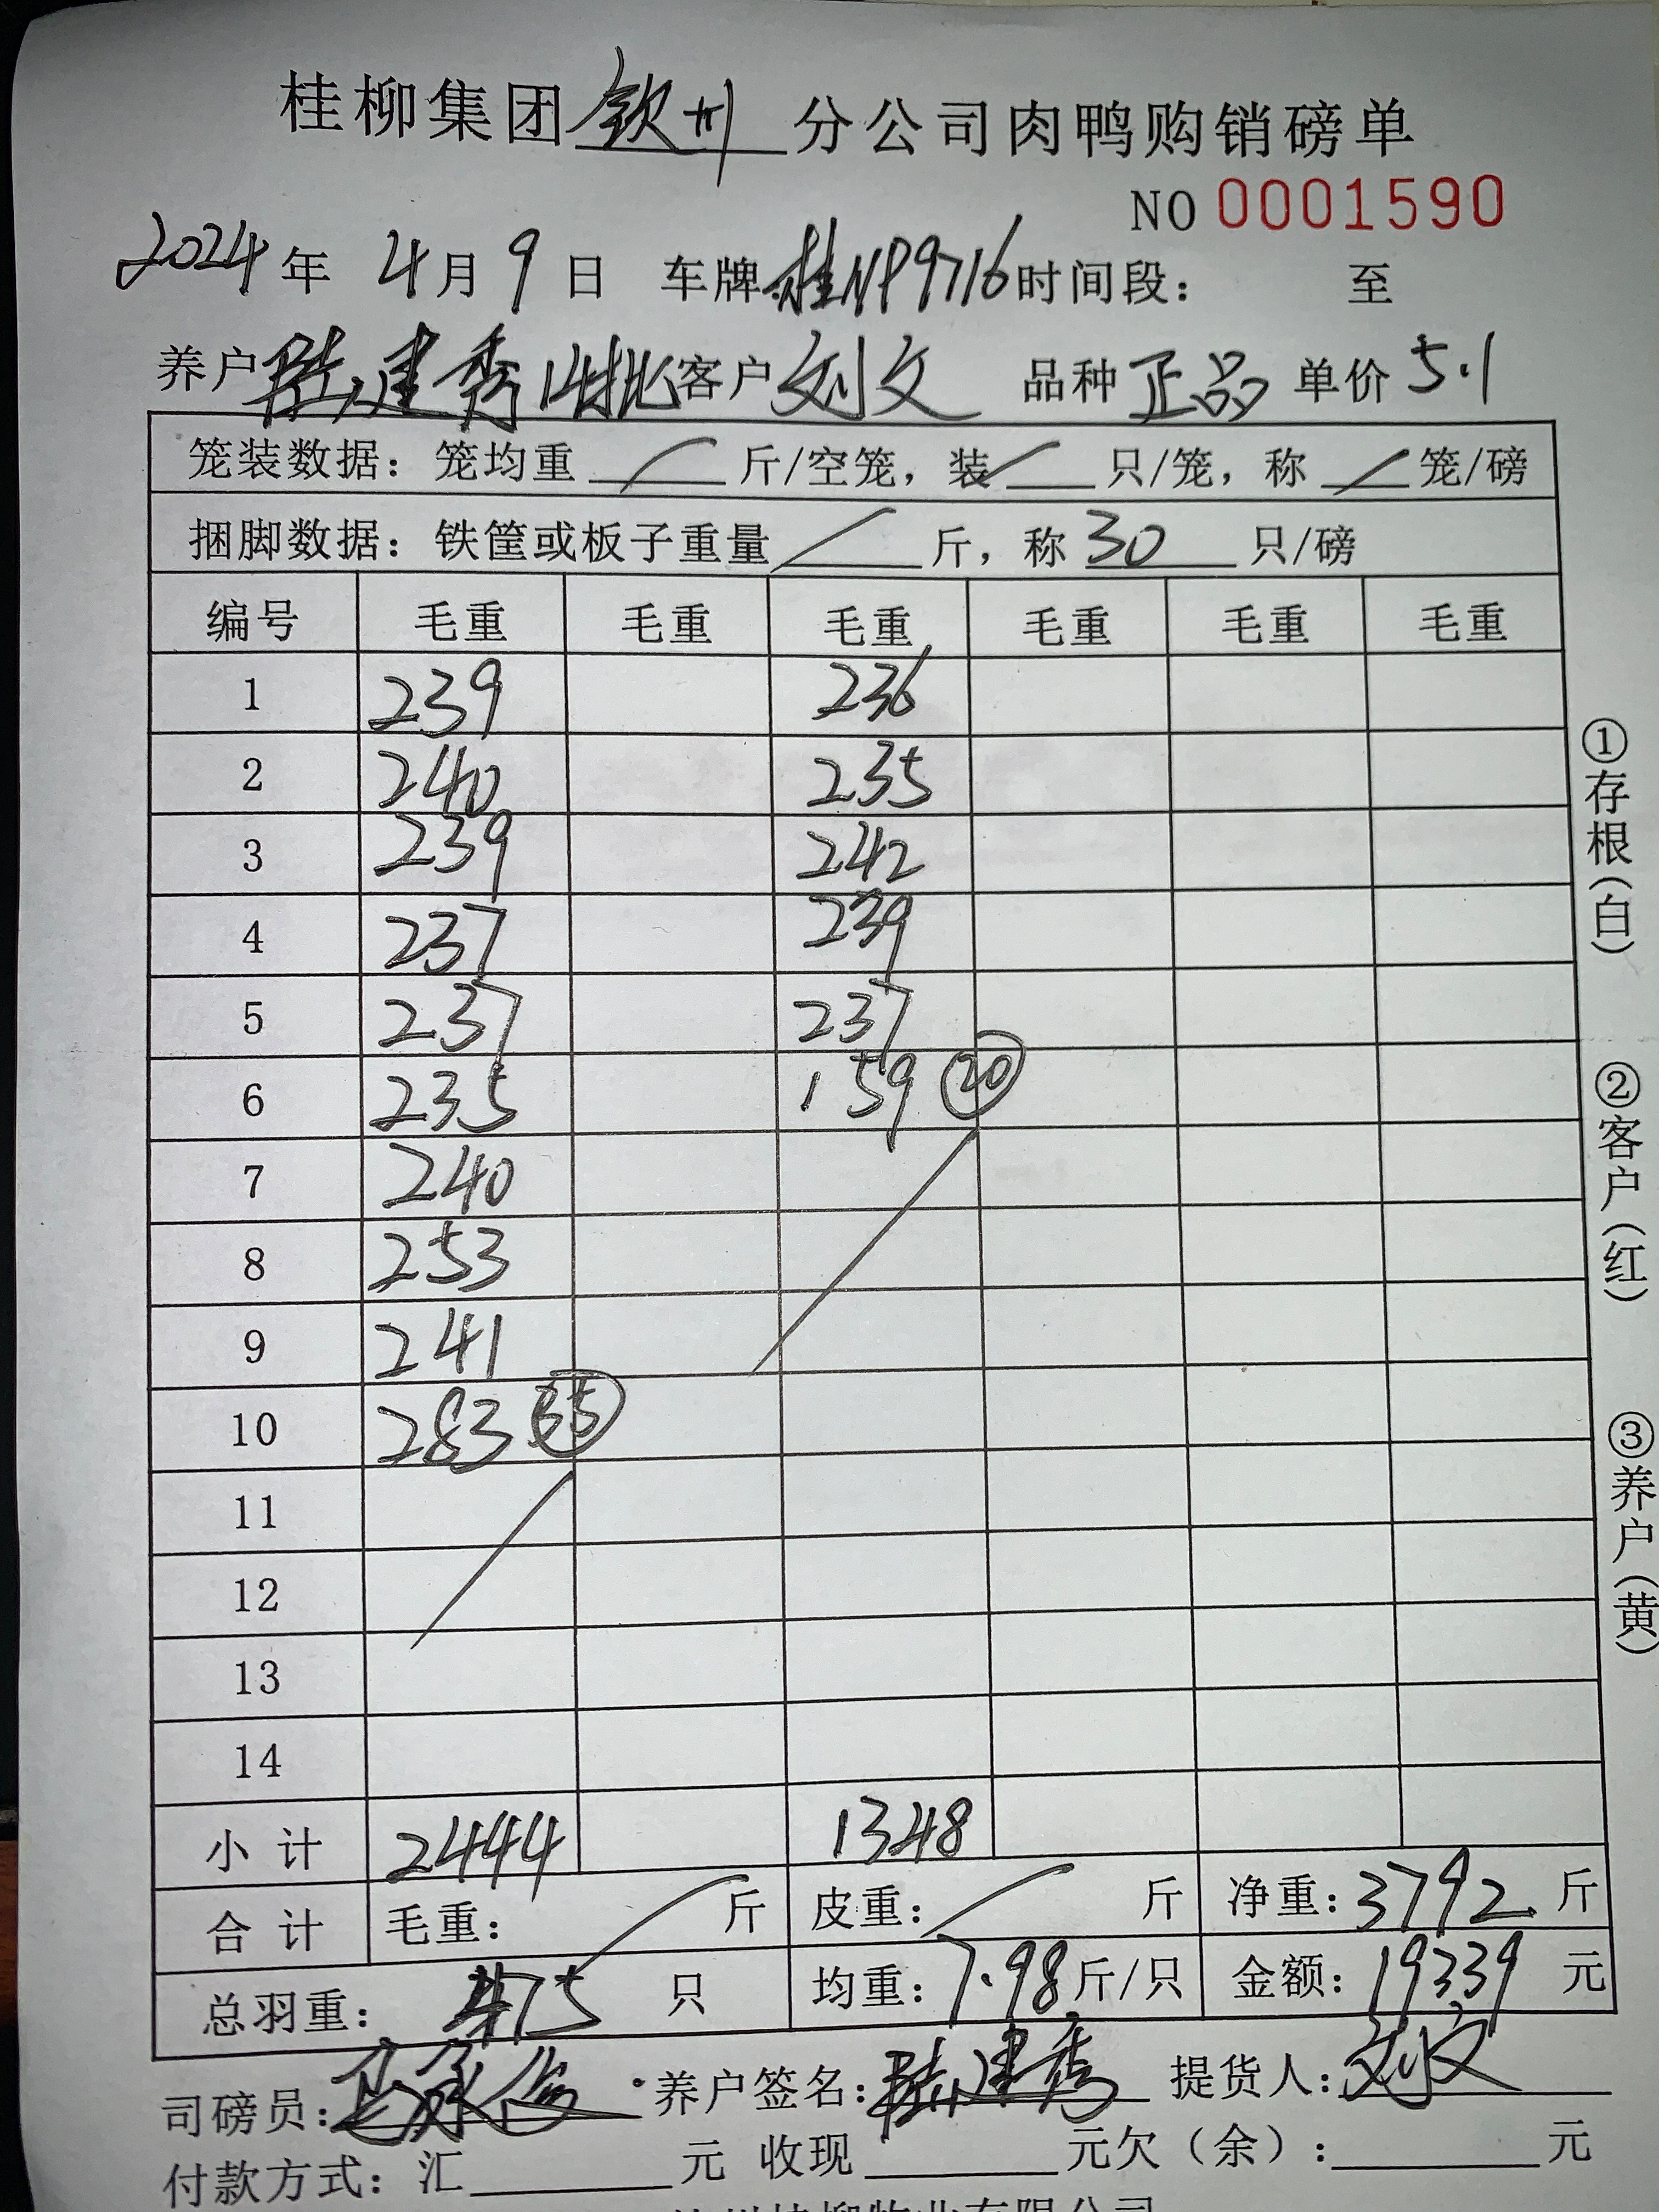 桂柳集团钦州分公司肉鸭购销磅单
NO 0001590
2024年 4月 9日 车牌桂NP9716时间段: 至
养户陆建秀14批客户刘文 品种正品 单价5.1
笼装数据:笼均重 / 斤/空笼,装 / 只/笼,称 / 笼/磅
捆脚数据:铁筐或板子重量 / 斤,称30 只/磅
编号 毛重 毛重 毛重 毛重 毛重 毛重
1 239 236
2 240 235
3 239 242
4 237 239
5 237 237
6 235 159 ⑳
7 240
8 253
9 241
10 283 ㉟
11
12
13
14
小计 2444 1348
合计 毛重: / 斤 皮重: / 斤 净重:3792斤
总羽重: 475 只 均重:7.98斤/只 金额:19339元
司磅员: 养户签名:陆建秀 提货人:刘文
付款方式:汇 元 收现 元欠(余): 元
①存根(白)
②客户(红)
③养户(黄)